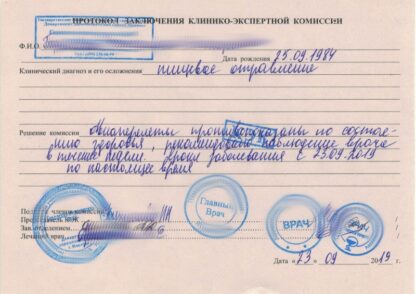 ПРОТОКОЛ ЗАКЛЮЧЕНИЯ КЛИНИКО-ЭКСПЕРТНОЙ КОМИССИИ
Ф.И.О.
Дата рождения 25.09.1984
Клинический диагноз и его осложнения пищевое отравление
Решение комиссии Авиаперелеты противопоказаны по состоя-
нию здоровья, рекомендовано наблюдение врача
в течение недели. Сроки заболевания с 23.09.2019
по настоящее время
члена комиссии
Председатель КЭК
Зав. отделением
Лечащий врач
Главный
Врач
ВРАЧ
Дата «23» 09 2019 г.